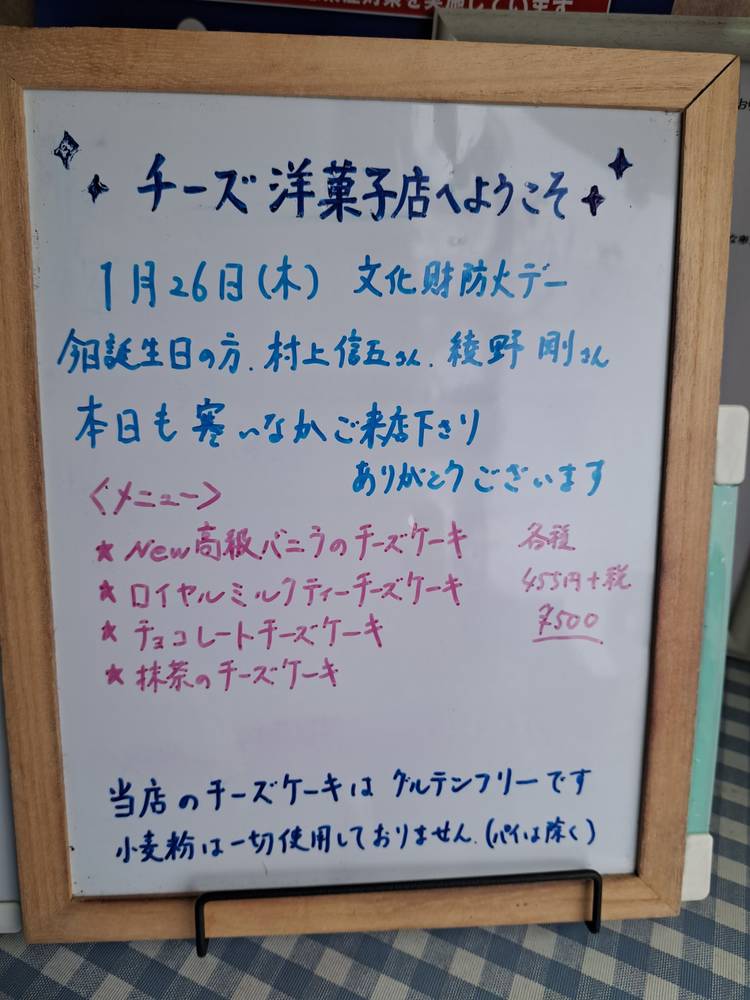 対策を実施しています
チーズ洋菓子店へようこそ
1月26日(木) 文化財防火デー
今日誕生日の方、村上信五さん、綾野剛さん
本日も寒いなかご来店下さり
ありがとうございます
<メニュー>
★New高級バニラのチーズケーキ 各種
★ロイヤルミルクティーチーズケーキ 455円+税
★チョコレートチーズケーキ
★抹茶のチーズケーキ
当店のチーズケーキはグルテンフリーです
小麦粉は一切使用しておりません。(パイは除く)